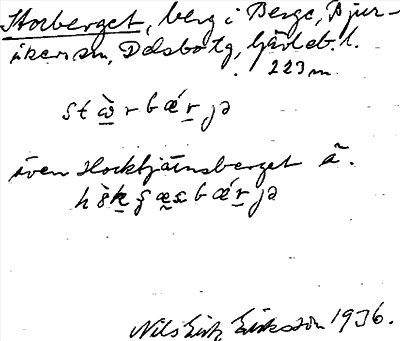 Storberget, berg i Berge, Bjur-
åkers sn, Delsbo tg, Gävleb. l.
223 m.
stɷ̀rbǽrjə
även Hocktjärnsberget ä.
Nils Erik Eriksson 1936.